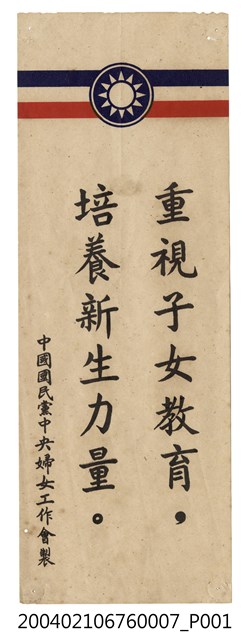 重視子女教育，
培養新生力量。
中國國民黨中央婦女工作會製
200402106760007_P001